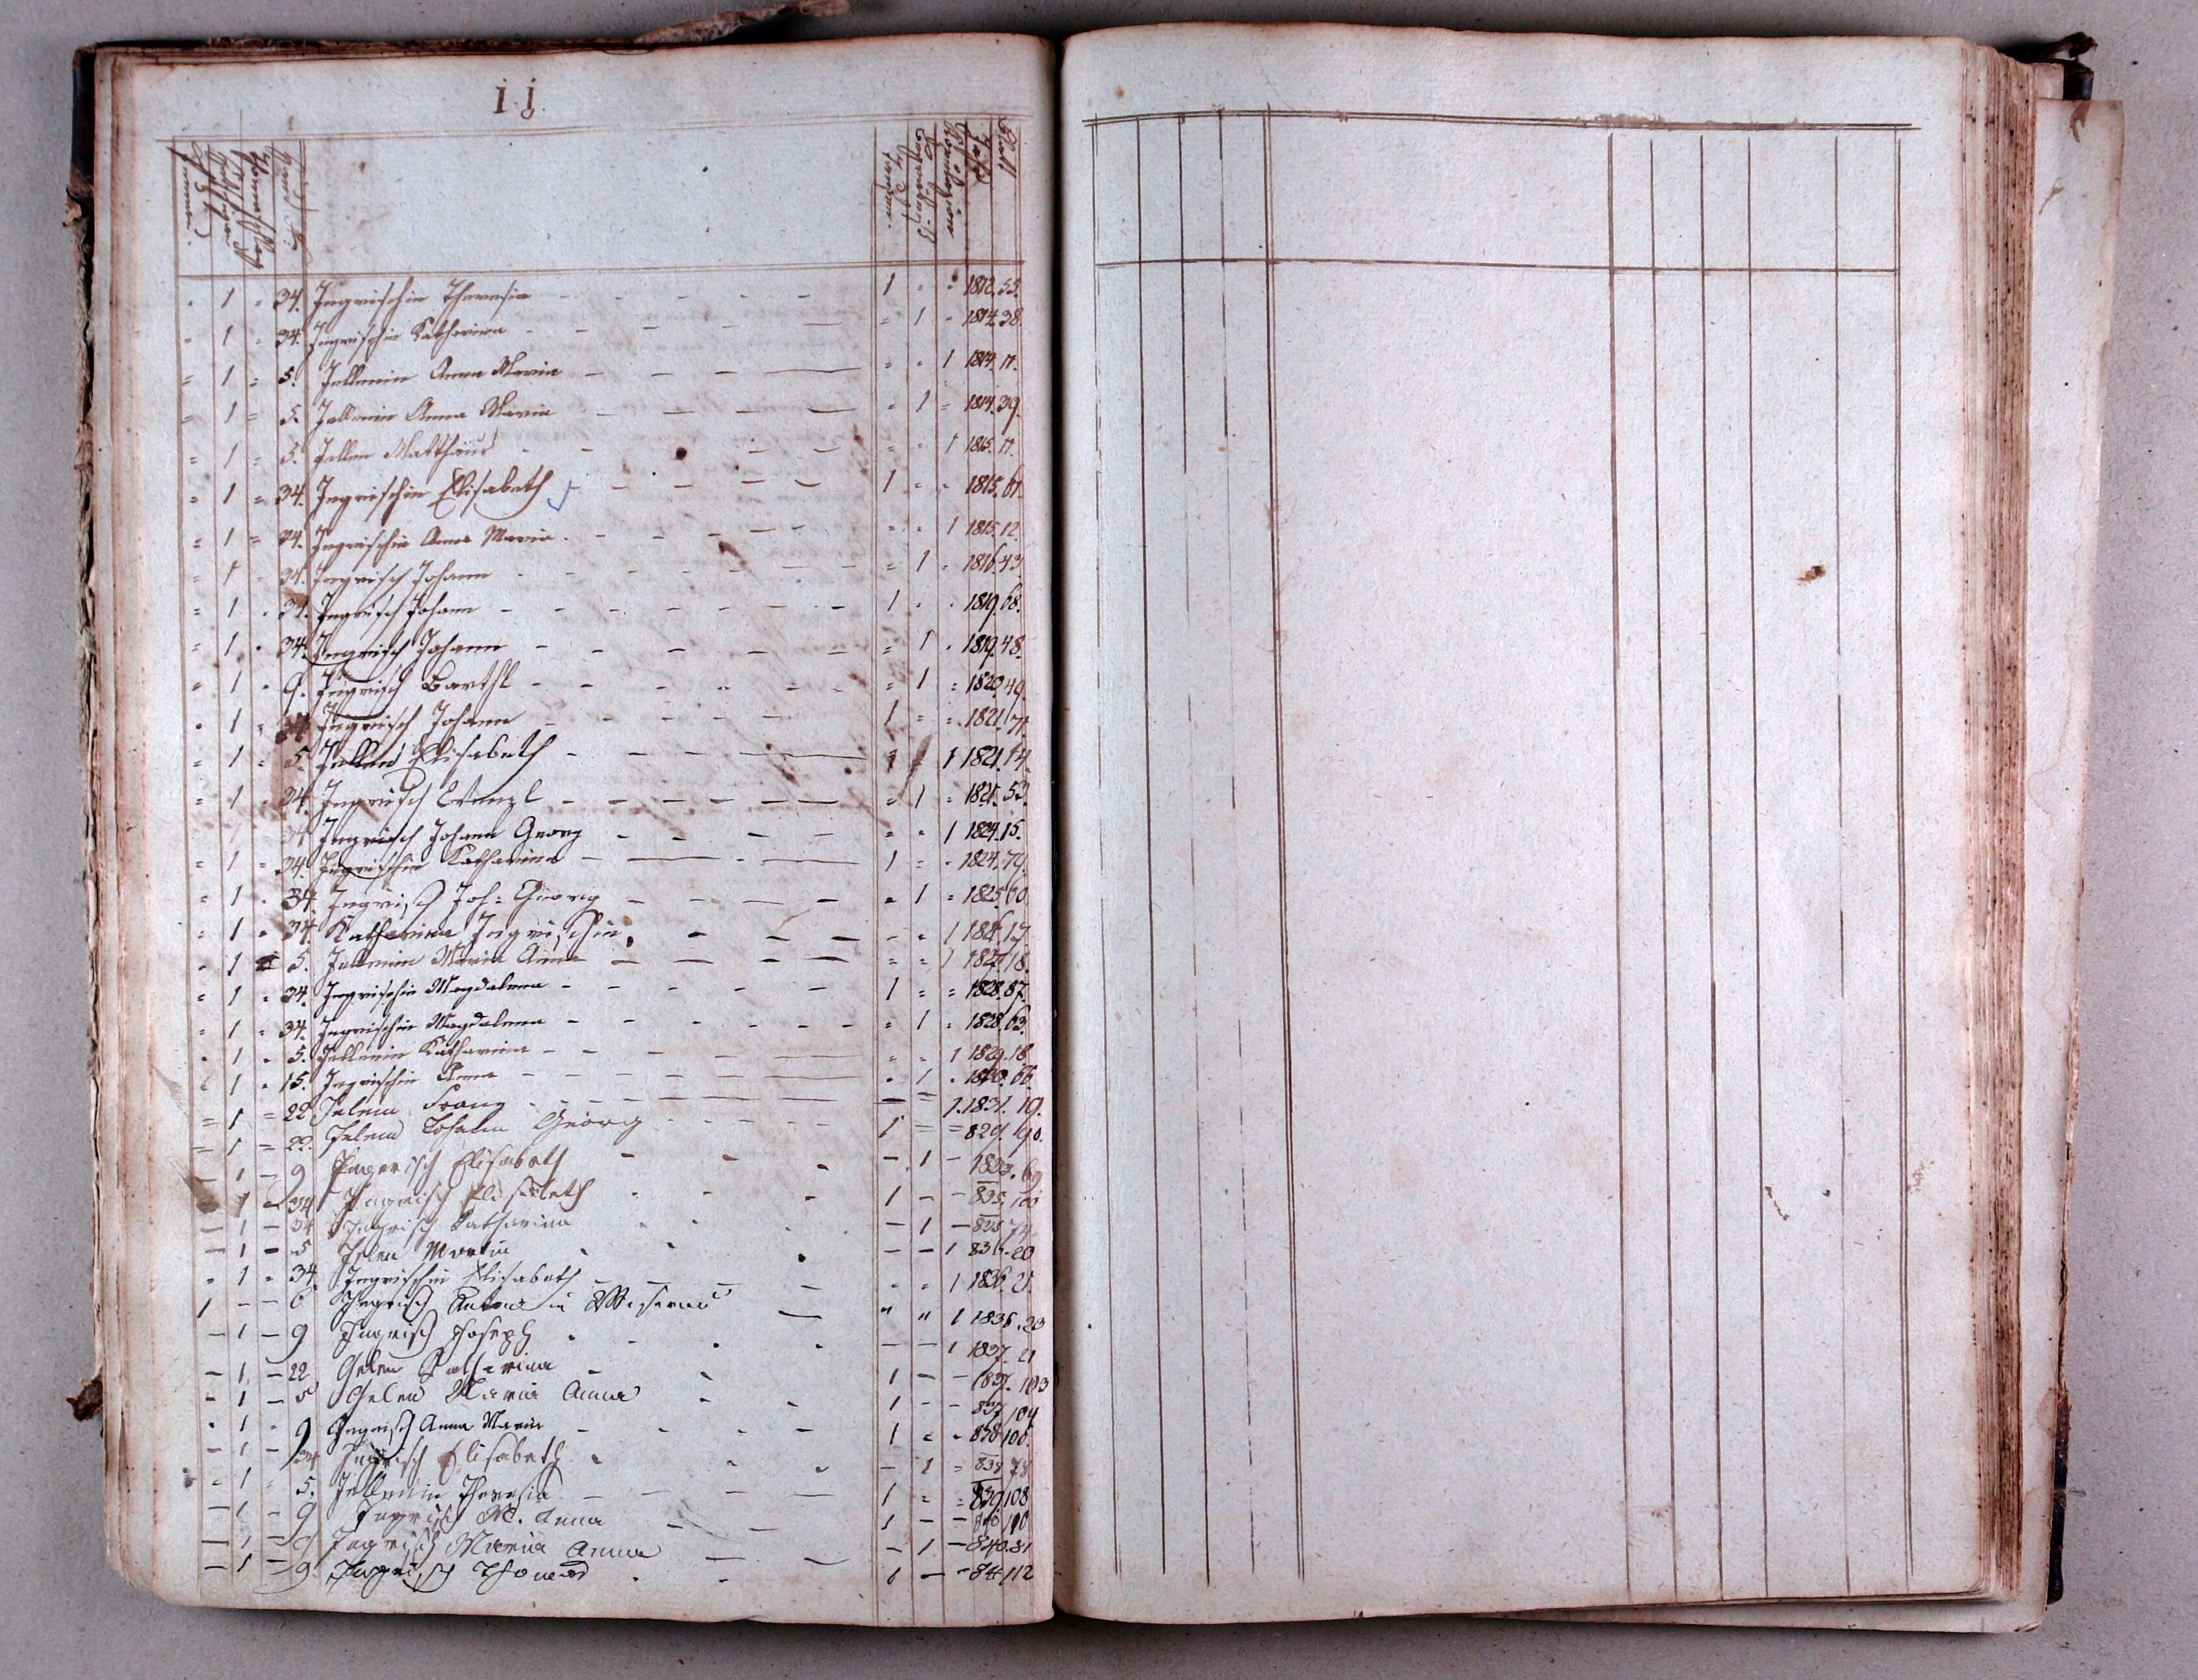 I j
Haus N.
Jahr
Blatt
1 34. Ingrischin Theresia 1 1812. 55.
1 34. Ingrischin Katharina 1 1814. 38.
1 5. Jellenin Anna Maria 1 1814. 11.
1 5. Jellenin Anna Maria 1 1814. 39.
1 5. Jellen Matthäus 1 1815. 11.
1 34. Ingrischin Elisabeth 1 1815. 61.
1 34. Ingrischin Anna Maria 1 1815. 12.
1 34. Ingrisch Johann 1 1816. 43.
1 34. Ingrisch Johann 1 1819. 68.
1 34. Ingrisch Johann 1 1819. 48.
1 9. Ingrisch Barthl 1 1820. 49.
1 34 Ingrisch Johann 1 1821. 71.
1 5. Jellen Elisabeth 1 1821. 14.
1 34. Ingrisch Wenzl 1 1821. 53.
1 34 Ingrisch Johann Georg 1 1824. 15.
1 34. Ingrischin Katharina 1 1824. 79.
1 34. Ingrisch Joh: Georg 1 1825. 60.
1 34. Katharina Ingrischin 1 17.
1 5. Jellenin Maria Anna 1 1827. 18.
1 34. Ingrischin Magdalena 1 1828. 87.
1 34. Ingrischin Magdalena 1 1828. 63.
1 5. Jellenin Katharina 1 1829. 18.
1 15. Ingrischin Anna 1 66.
1 22 Jelen Franz 1. 1831. 19.
1 22. Jelen Johann Georg 1 829. 90.
1 9 Ingrisch Elisabeth 1 1833. 69
1 34 Ingrisch Elisabeth 1 835. 100
1 34 Ingrisch Katharina 1 835 74
1 5 Jelen Martin 1 20
1 34. Ingrischin Elisabeth 1 1836. 21.
1 6 Ingrisch in 1 1836. 23
1 9 Ingrisch Joseph 1 1837. 21
1 22 Gelen Katharina 1 1837. 103
1 5 Gelen Maria Anna 1 837 104
1 9 Ingrisch Anna Maria 1 838 106.
1 34 Ingrisch Elisabeth 1 838 78
1 5. Jellenin Theresia 1 839. 108
1 9 Ingrisch M. Anna 1 840 110
1 9 Ingrisch Maria Anna 1 840. 81
1 9 Ingrisch Thomas 1 841 112